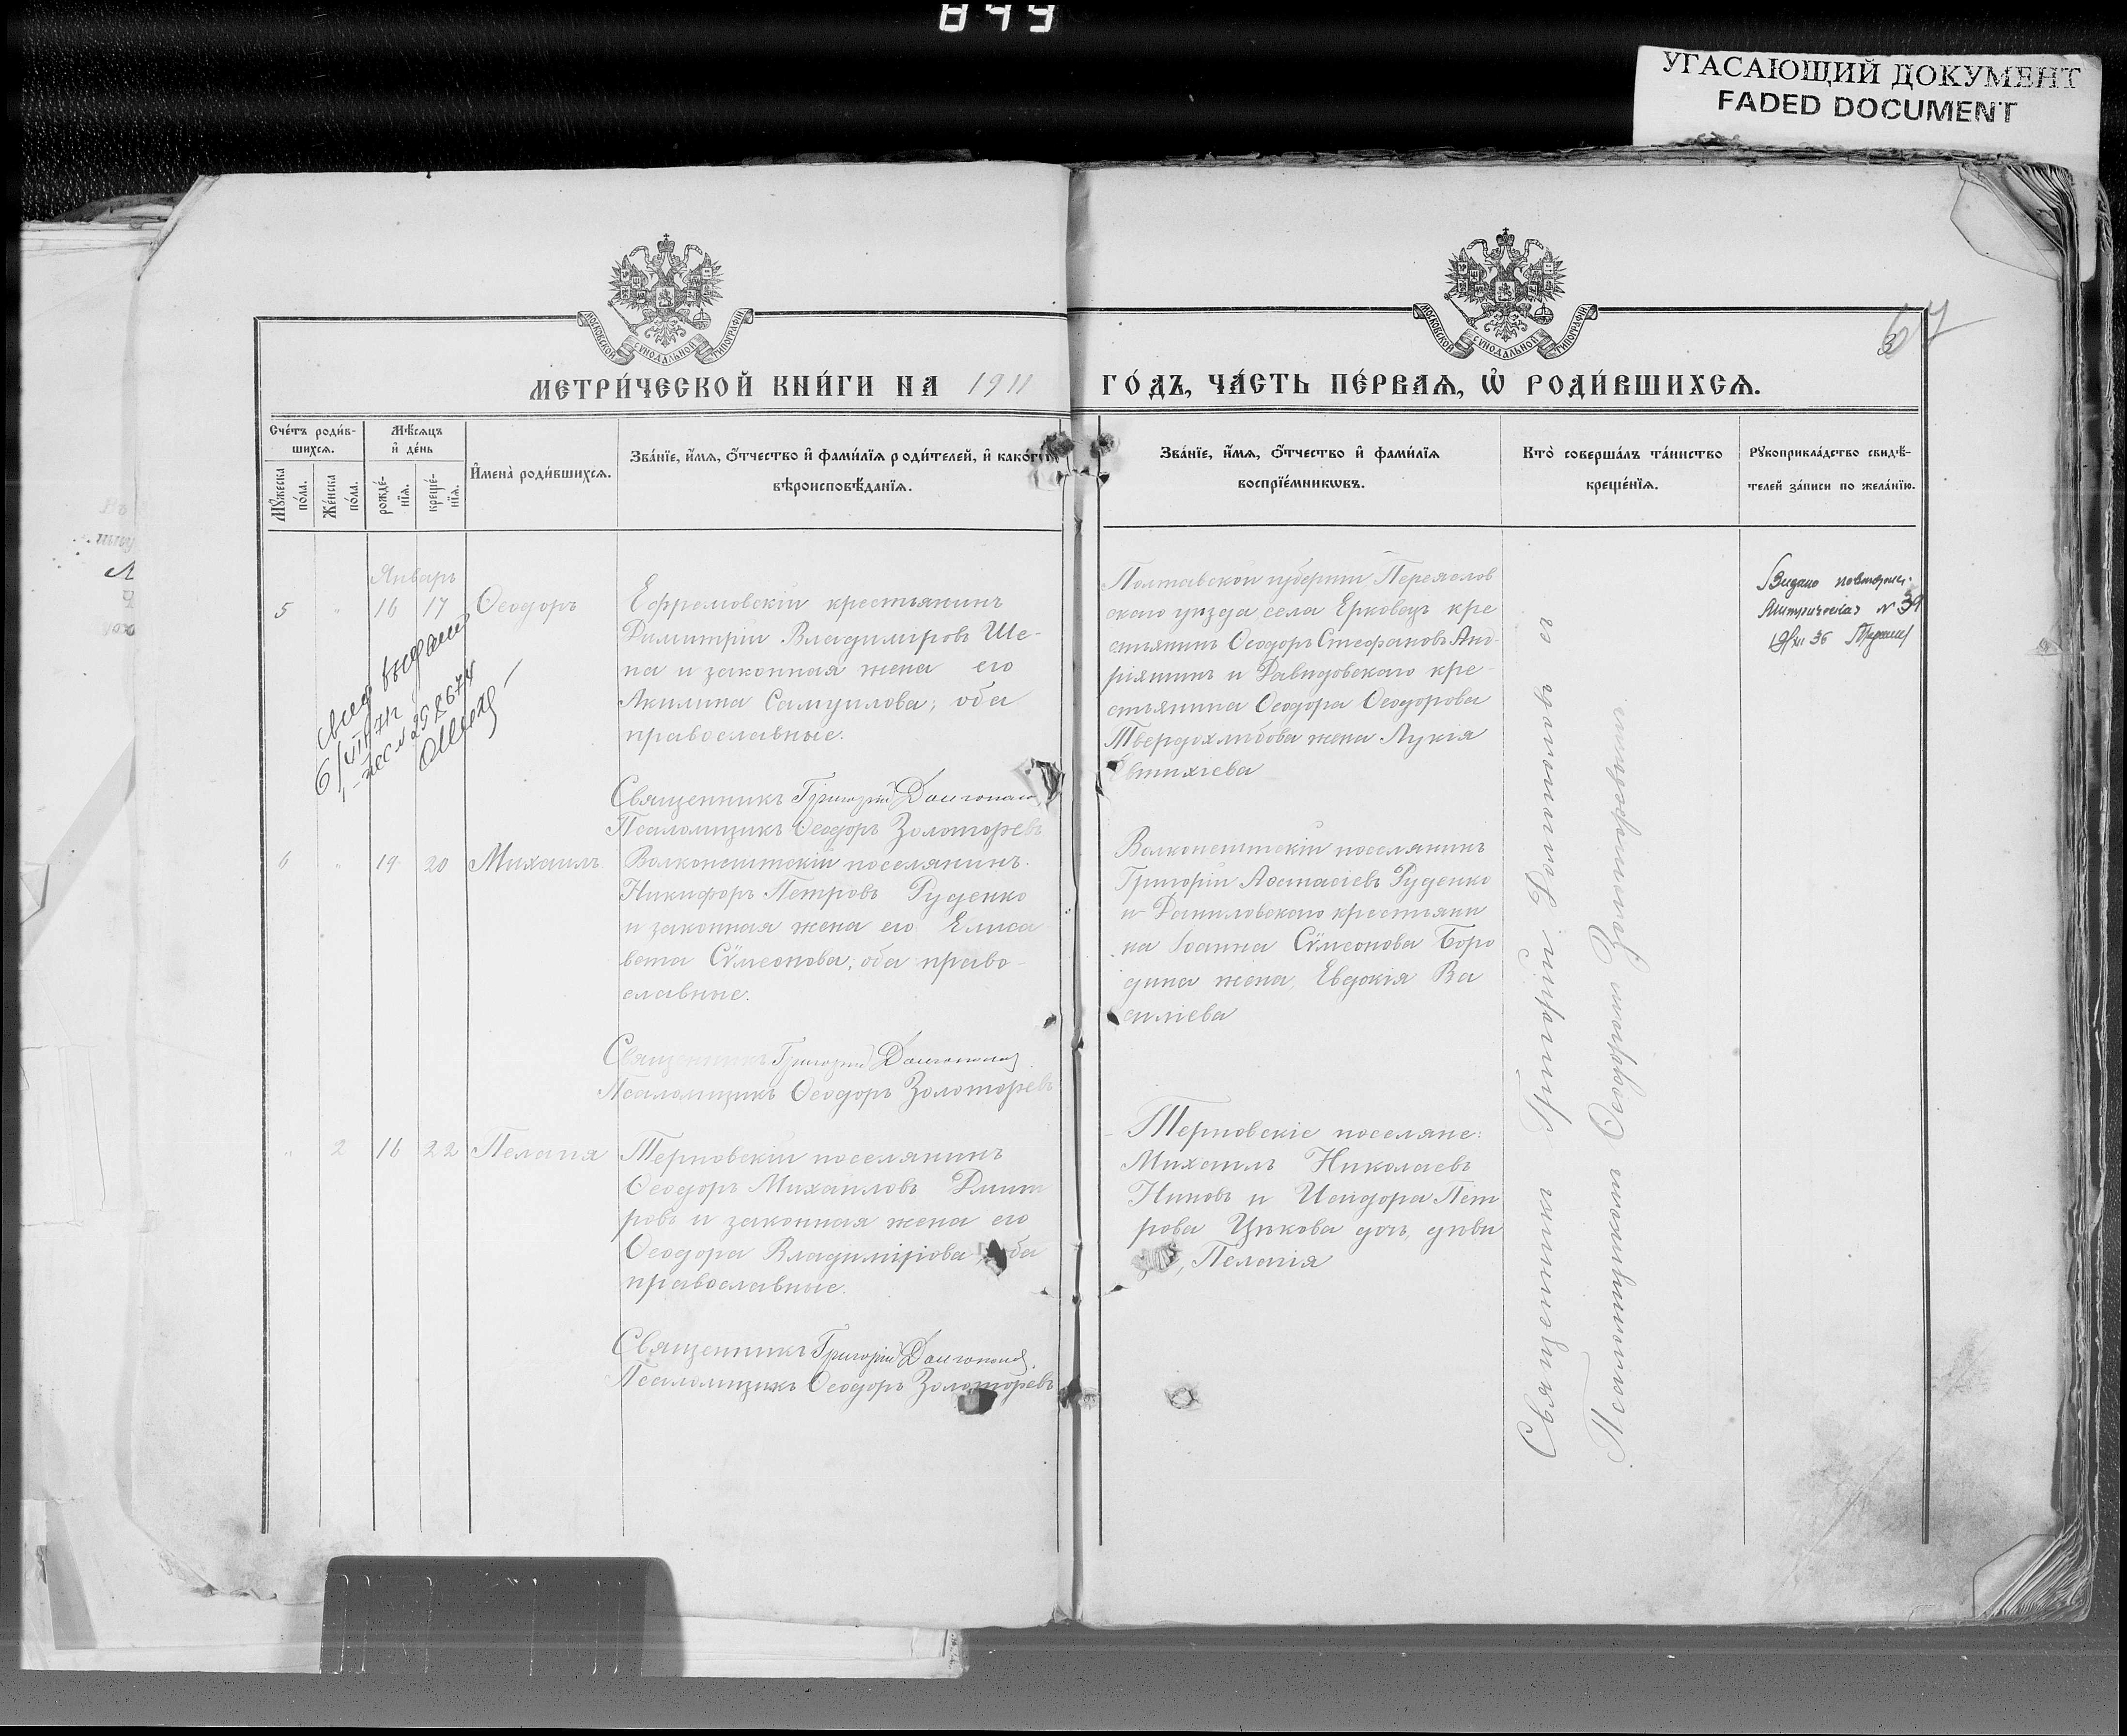 849
УГАСАЮЩИЙ ДОКУМЕНТ
FADED DOCUMENT
МОСКОВСКОЙ СѴНОДАЛЬНОЙ ТИПОГРАФІИ
МОСКОВСКОЙ СѴНОДАЛЬНОЙ ТИПОГРАФІИ
67
3
МЕТРИ́ЧЕСКОЙ КНИ́ГИ НА 1911
ГО́ДЪ, ЧА́СТЬ ПЕ́РВАѦ, Ѡ҆ РОДИ́ВШИХСѦ.
Сче́тъ роди́в-
шихсѧ.
Мꙋжеска по́ла.
Же́нска по́ла.
Мѣ́сѧцъ
и҆ де́нь
рожде́-
нїѧ.
креще́-
нїѧ.
И҆мена̀ роди́вшихсѧ.
Зва́нїе, и҆́мѧ, ѻ҆́тчество и҆ фами́лїѧ роди́телей, и҆ како́гѡ
вѣроисповѣ́данїѧ.
Зва́нїе, и҆́мѧ, ѻ҆́тчество и҆ фами́лїѧ
воспрїе́мникѡвъ.
Кто̀ соверша́лъ та́инство
креще́нїѧ.
Рꙋкоприкла́дство свидѣ́-
телей за́писи по жела́нїю.
Январь
5 " 16 17 Ѳеодоръ
Ефремовскій крестьянинъ
Димитрій Владиміровъ Ше-
па и законная жена его
Акилина Самуилова; оба
православные.
Священникъ Григорій Долгопол
Псаломщикъ Ѳеодоръ Золоторевъ
Полтавской губерніи Переяслов
скаго уѣзда села Ерковецъ кре
стьянинъ Ѳеодоръ Стефановъ Анд-
ріяшинъ и Давидовскаго кре-
стьянина Ѳеодора Ѳеодорова
Твердохлибова жена Лукія
Евтихіева
свид выдано
6/VII 71г
Видано повторн.
N 39
36
6 " 19 20 Михаилъ
Волконештскій поселянинъ
Никифоръ Петровъ Руденко
и законная жена его Елиса
вета Сѵмеонова; оба право-
славные.
Священникъ Григорій Долгопол
Псаломщикъ Ѳеодоръ Золоторевъ
Волконештскій поселянинъ
Григорій Аѳанасіевъ Руденко
и Даниловскаго крестьяни
на Іоанна Сѵмеонова Боро
дина жена, Евдокія Ва
силіева
" 2 16 22 Пелагія
Терновскій поселянинъ
Ѳеодоръ Михаиловъ Димит
ровъ и законная жена его
Ѳеодора Владимірова, оба
православные.
Священникъ Григорій Долгопол
Псаломщикъ Ѳеодоръ Золоторевъ
Терновскіе поселяне:
Михаилъ Николаевъ
и Исидора Пет
рова Цѣкова дочь, дѣви
Пелагія
Священникъ Григорій Долгополов съ
Псаломщикомъ Ѳеодоромъ Золоторевымъ